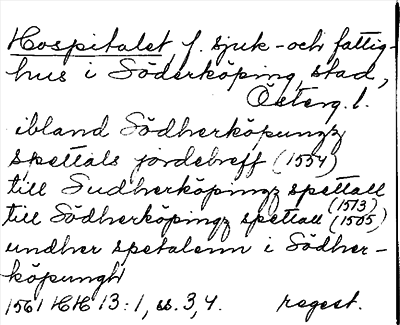 Hospitalet, f. sjuk- och fattig-
hus i Söderköping, stad,
Österg. l.
ibland Södherköpungz
spettals jordebreff (1554)
till Sudherköpingz spettall (1573)
till Södherköpingz spettall (1505)
undher spetalenn i Södher-
köpungh
1561 HH 13:1, ss. 3, 4. regest.